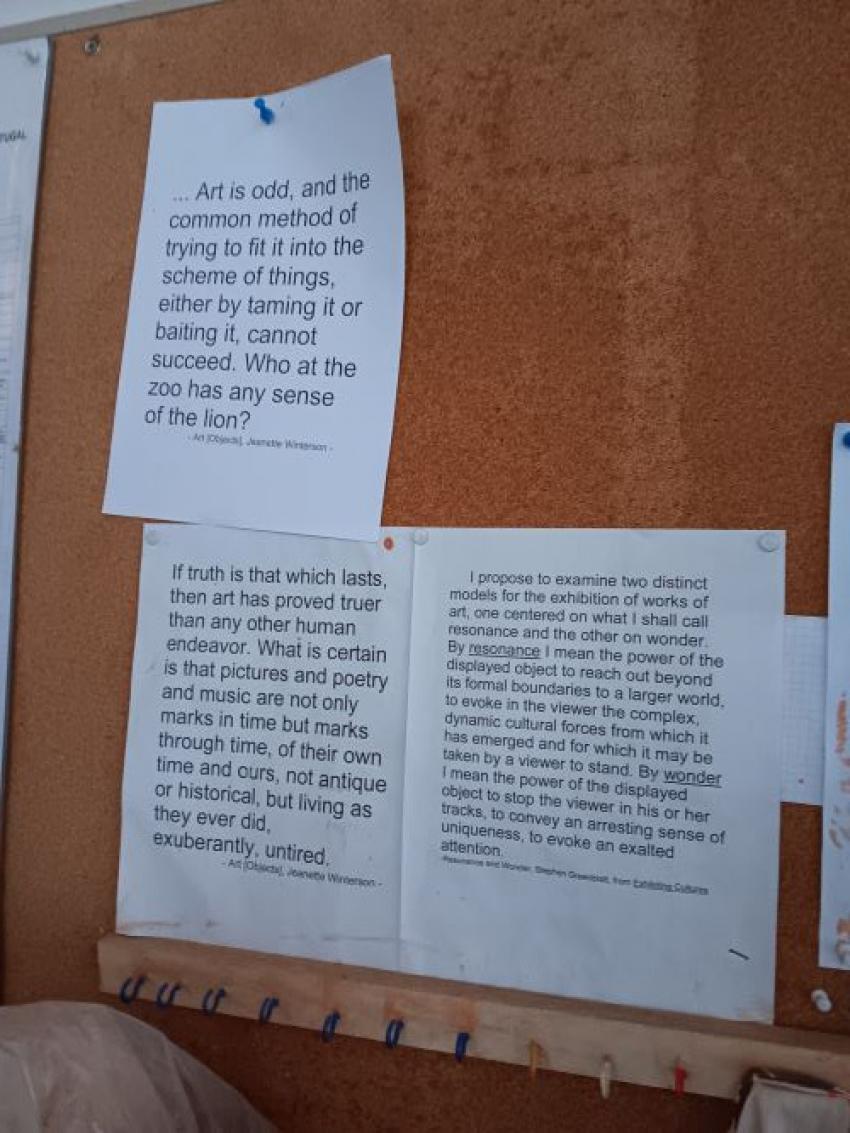 TUGAL
... Art is odd, and the
common method of
trying to fit it into the
scheme of things,
either by taming it or
baiting it, cannot
succeed. Who at the
zoo has any sense
of the lion?
- Art [Objects], Jeanette Winterson -
If truth is that which lasts,
then art has proved truer
than any other human
endeavor. What is certain
is that pictures and poetry
and music are not only
marks in time but marks
through time, of their own
time and ours, not antique
or historical, but living as
they ever did,
exuberantly, untired.
- Art [Objects], Jeanette Winterson -
I propose to examine two distinct
models for the exhibition of works of
art, one centered on what I shall call
resonance and the other on wonder.
By resonance I mean the power of the
displayed object to reach out beyond
its formal boundaries to a larger world,
to evoke in the viewer the complex,
dynamic cultural forces from which it
has emerged and for which it may be
taken by a viewer to stand. By wonder
I mean the power of the displayed
object to stop the viewer in his or her
tracks, to convey an arresting sense of
uniqueness, to evoke an exalted
attention.
-Resonance and Wonder, Stephen Greenblatt, from Exhibiting Cultures